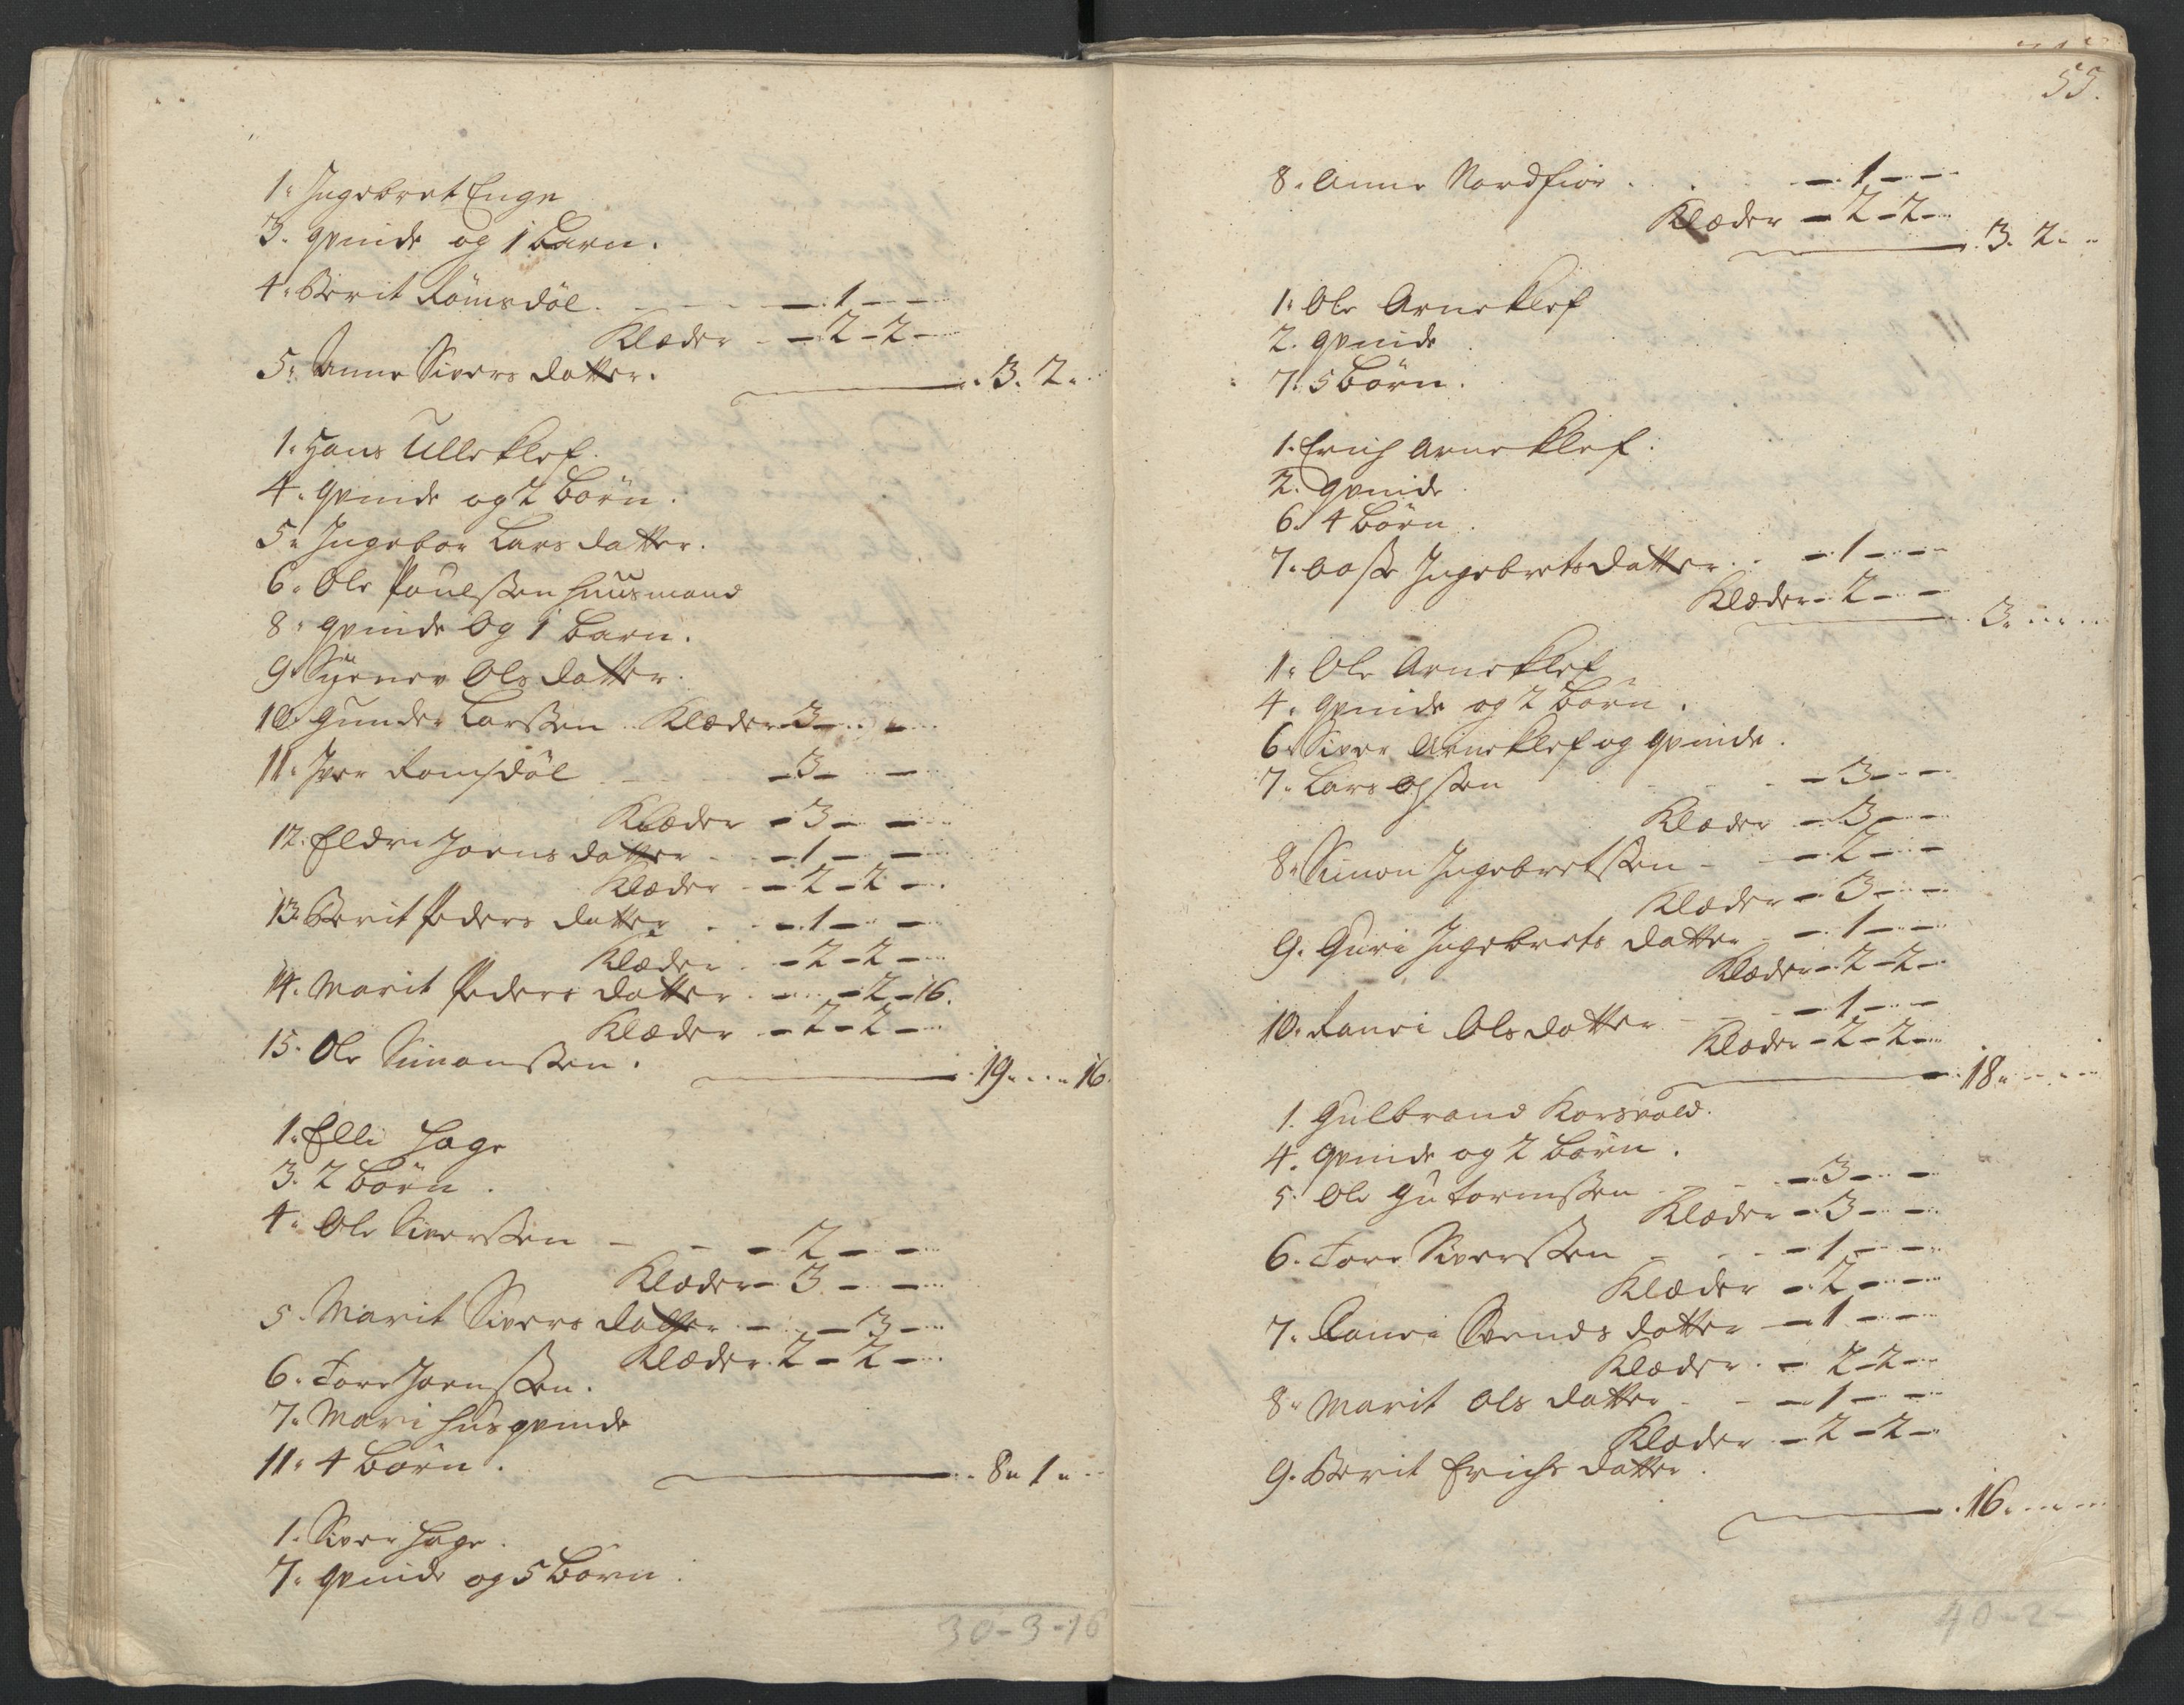 1. Ingebret Enge
3. qvinde og 1 Barn.
4. Berit Römsdöl. - 1 - -
Klæder - 2 - 2 -
5. Anne Sivers datter.
3. 2.
1. Hans Ulleklef.
4. qvinde og 2 börn.
5. Ingebor Lars datter.
6. Ole Poulssen huusmand
8. qvinde Og 1 barn.
9. Syenev Ols datter.
10. Gunder Larssen Klæder 3 - -
11. Iver Romsdöl - 3 - -
Klæder - 3 - -
12. Eldri Joens datter - 1 - -
Klæder - 2 - 2 -
13. Berit Peders datter - 1 - -
Klæder - 2 - 2 -
14. Marit Peders datter - 2 - 16.
Klæder - 2 - 2 -
15. Ole Simonssen.
19 . . 16.
1. Elli Hage
3. 2 börn.
4. Ole Siverssen - 2 - -
Klæder - 3 - -
5. Marit Sivers datter - - 3 -
Klæder 2 - 2 -
6. Tore Joenssen.
7. Mari husqvinde
11. 4 börn.
8. 1.
1. Siver Hage.
7. qvinde og 5 börn.
30-3-16
55.
8. Anne Nordfior. - 1 - -
Klæder - 2 - 2 -
3. 2.
1. Ole Arneklef
2. qvinde
7. 5 börn.
1. Erich Arneklef.
2. qvinde
6. 4 börn.
7. Aasse Ingebrets datter. - 1 - -
Klæder - 2 - -
3.
1. Ole Arneklef
4. qvinde og 2 börn.
6. Siver Arneklef og qvinde.
7. Lars Olssen - 3 - -
Klæder - 3 - -
8. Simon Ingebretssen - 2 - -
Klæder - 3 - -
9. Guri Ingebrets datter - 1 - -
Klæder - 2 - 2 -
10. Ranri Ols datter - 1 - -
Klæder - 2 - 2 -
18.
1. Gulbrand Korsvold.
4. qvinde og 2 börn.
5. Ole Gutormssen - 3 - -
Klæder - 3 - -
6. Tore Siverssen - 1 - -
Klæder - 2 - -
7. Ranri Svends datter - 1 - -
Klæder - 2 - 2 -
8. Marit Ols datter - 1 - -
Klæder - 2 - 2 -
9. Berit Erichs datter.
16.
40-2-